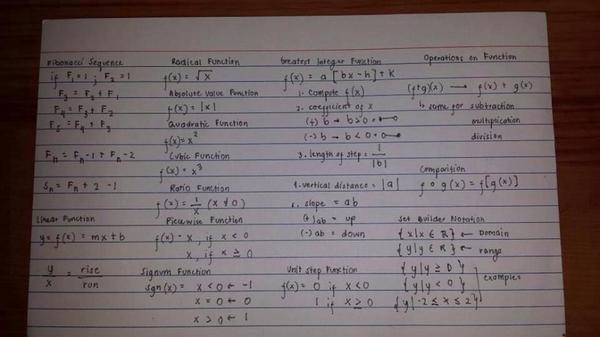 Fibonacci Sequence
if F₁ = 1 ; F₂ = 1
F₃ = F₂ + F₁
F₄ = F₃ + F₂
F₅ = F₄ + F₃
Fₙ = Fₙ - 1 + Fₙ - 2
Sₙ = Fₙ + 2 - 1
Linear Function
y = f(x) = mx + b
y/x = rise/run
Radical Function
f(x) = √x
Absolute Value Function
f(x) = |x|
Quadratic Function
f(x) = x²
Cubic Function
f(x) = x³
Ratio Function
f(x) = 1/x (x ≠ 0)
Piecewise Function
f(x) = x, if x < 0
x, if x ≥ 0
Signum Function
sgn(x) = x < 0 ← -1
x = 0 ← 0
x > 0 ← 1
Greatest Integer Function
f(x) = a [bx - h] + k
1. Compute f(x)
2. coefficient of x
(+) b → b > 0
(-) b → b < 0
3. length of step = 1/|b|
4. vertical distance = |a|
5. slope = ab
(+) ab = up
(-) ab = down
Unit Step Function
f(x) = 0 if x < 0
1 if x ≥ 0
Operations on Function
(f+g)(x) → f(x) + g(x)
same for subtraction
multiplication
division
Composition
f o g(x) = f[g(x)]
Set Builder Notation
{x|x ∈ R} ← Domain
{y|y ∈ R} ← range
{y|y ≥ 0}
{y|y < 0} examples
{y|-2 ≤ x ≤ 2}